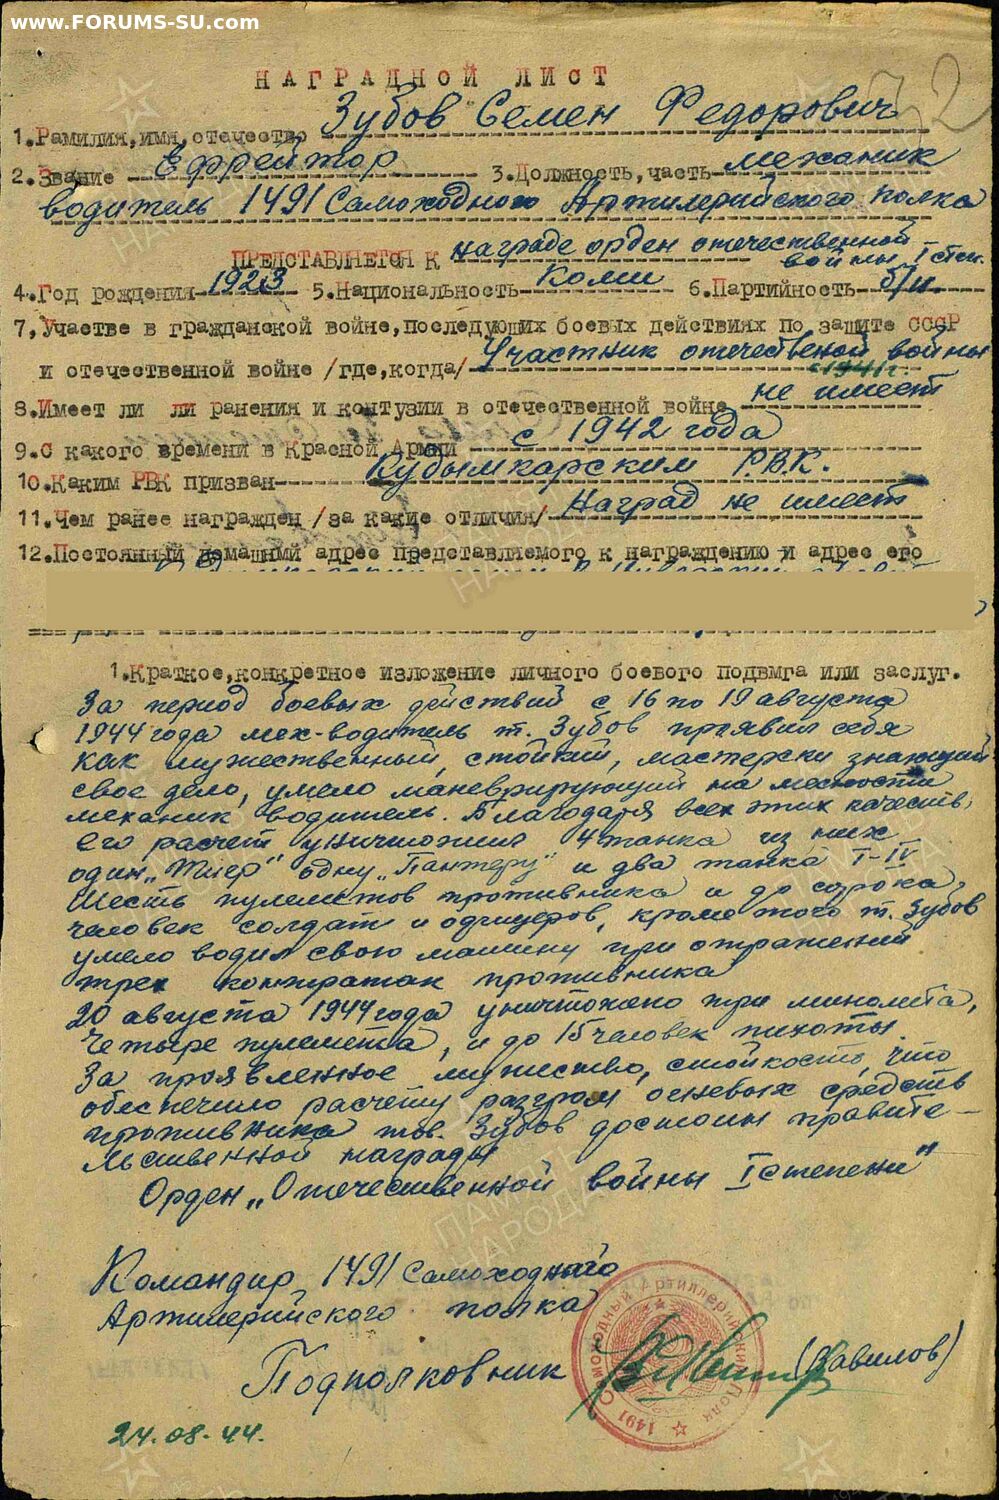 www.FORUMS-SU.com
НАГРАДНОЙ ЛИСТ
1. Фамилия, имя, отчество Зубов Семен Федорович
2. Звание Ефрейтор 3. Должность, часть механик
водитель 1491 Самоходного Артилерийского полка
ПРЕДСТАВЛЯЕТСЯ К награде орден отечественной
войны I степ.
4. Год рождения 1923 5. Национальность Коми 6. Партийность б/п
7, Участве в гражданской войне, последующих боевых действиях по защите СССР
и отечественной войне /где, когда/ Участник отечественной войны
с 1941 г.
8. Имеет ли ли ранения и контузии в отечественной войне не имеет
9. С какого времени в Красной Армии с 1942 года
10. Каким РВК призван Кудымкарским Р.В.К.
11. Чем ранее награжден /за какие отличия/ Наград не имеет
12. Постоянный домашний адрес представляемого к награждению и адрес его
1. Краткое, конкретное изложение личного боевого подвмга или заслуг.
За период боевых действий с 16 по 19 августа
1944 года мех-водитель т. Зубов проявил себя
как мужественный, стойкий, мастерски знающий
свое дело, умело маневрирующий на местности
механик водитель. Благодаря всех этих качеств,
его расчет уничтожил 4 танка из них
один „Тигр" одну „Пантеру" и два танка Т-IV
Шесть пулеметов противника и до сорока
человек солдат и офицеров, кроме того т. Зубов
умело водил свою машину при отражений
трех контратак противника
20 августа 1944 года уничтожено три миномета,
Четыре пулемета, и до 15 человек пихоты.
За проявленное мужество, стойкость, что
обеспечило расчету разгром огневых средств
противника тов. Зубов достоин правите-
льственной награды
Орден „Отечественной войны I степени"
Командир 1491 Самоходного
Артилерийского полка
Подполковник (Вавилов)
1491 Самоходный Артиллерийский Полк
24.08.44.
ПАМЯТЬ
НАРОДА